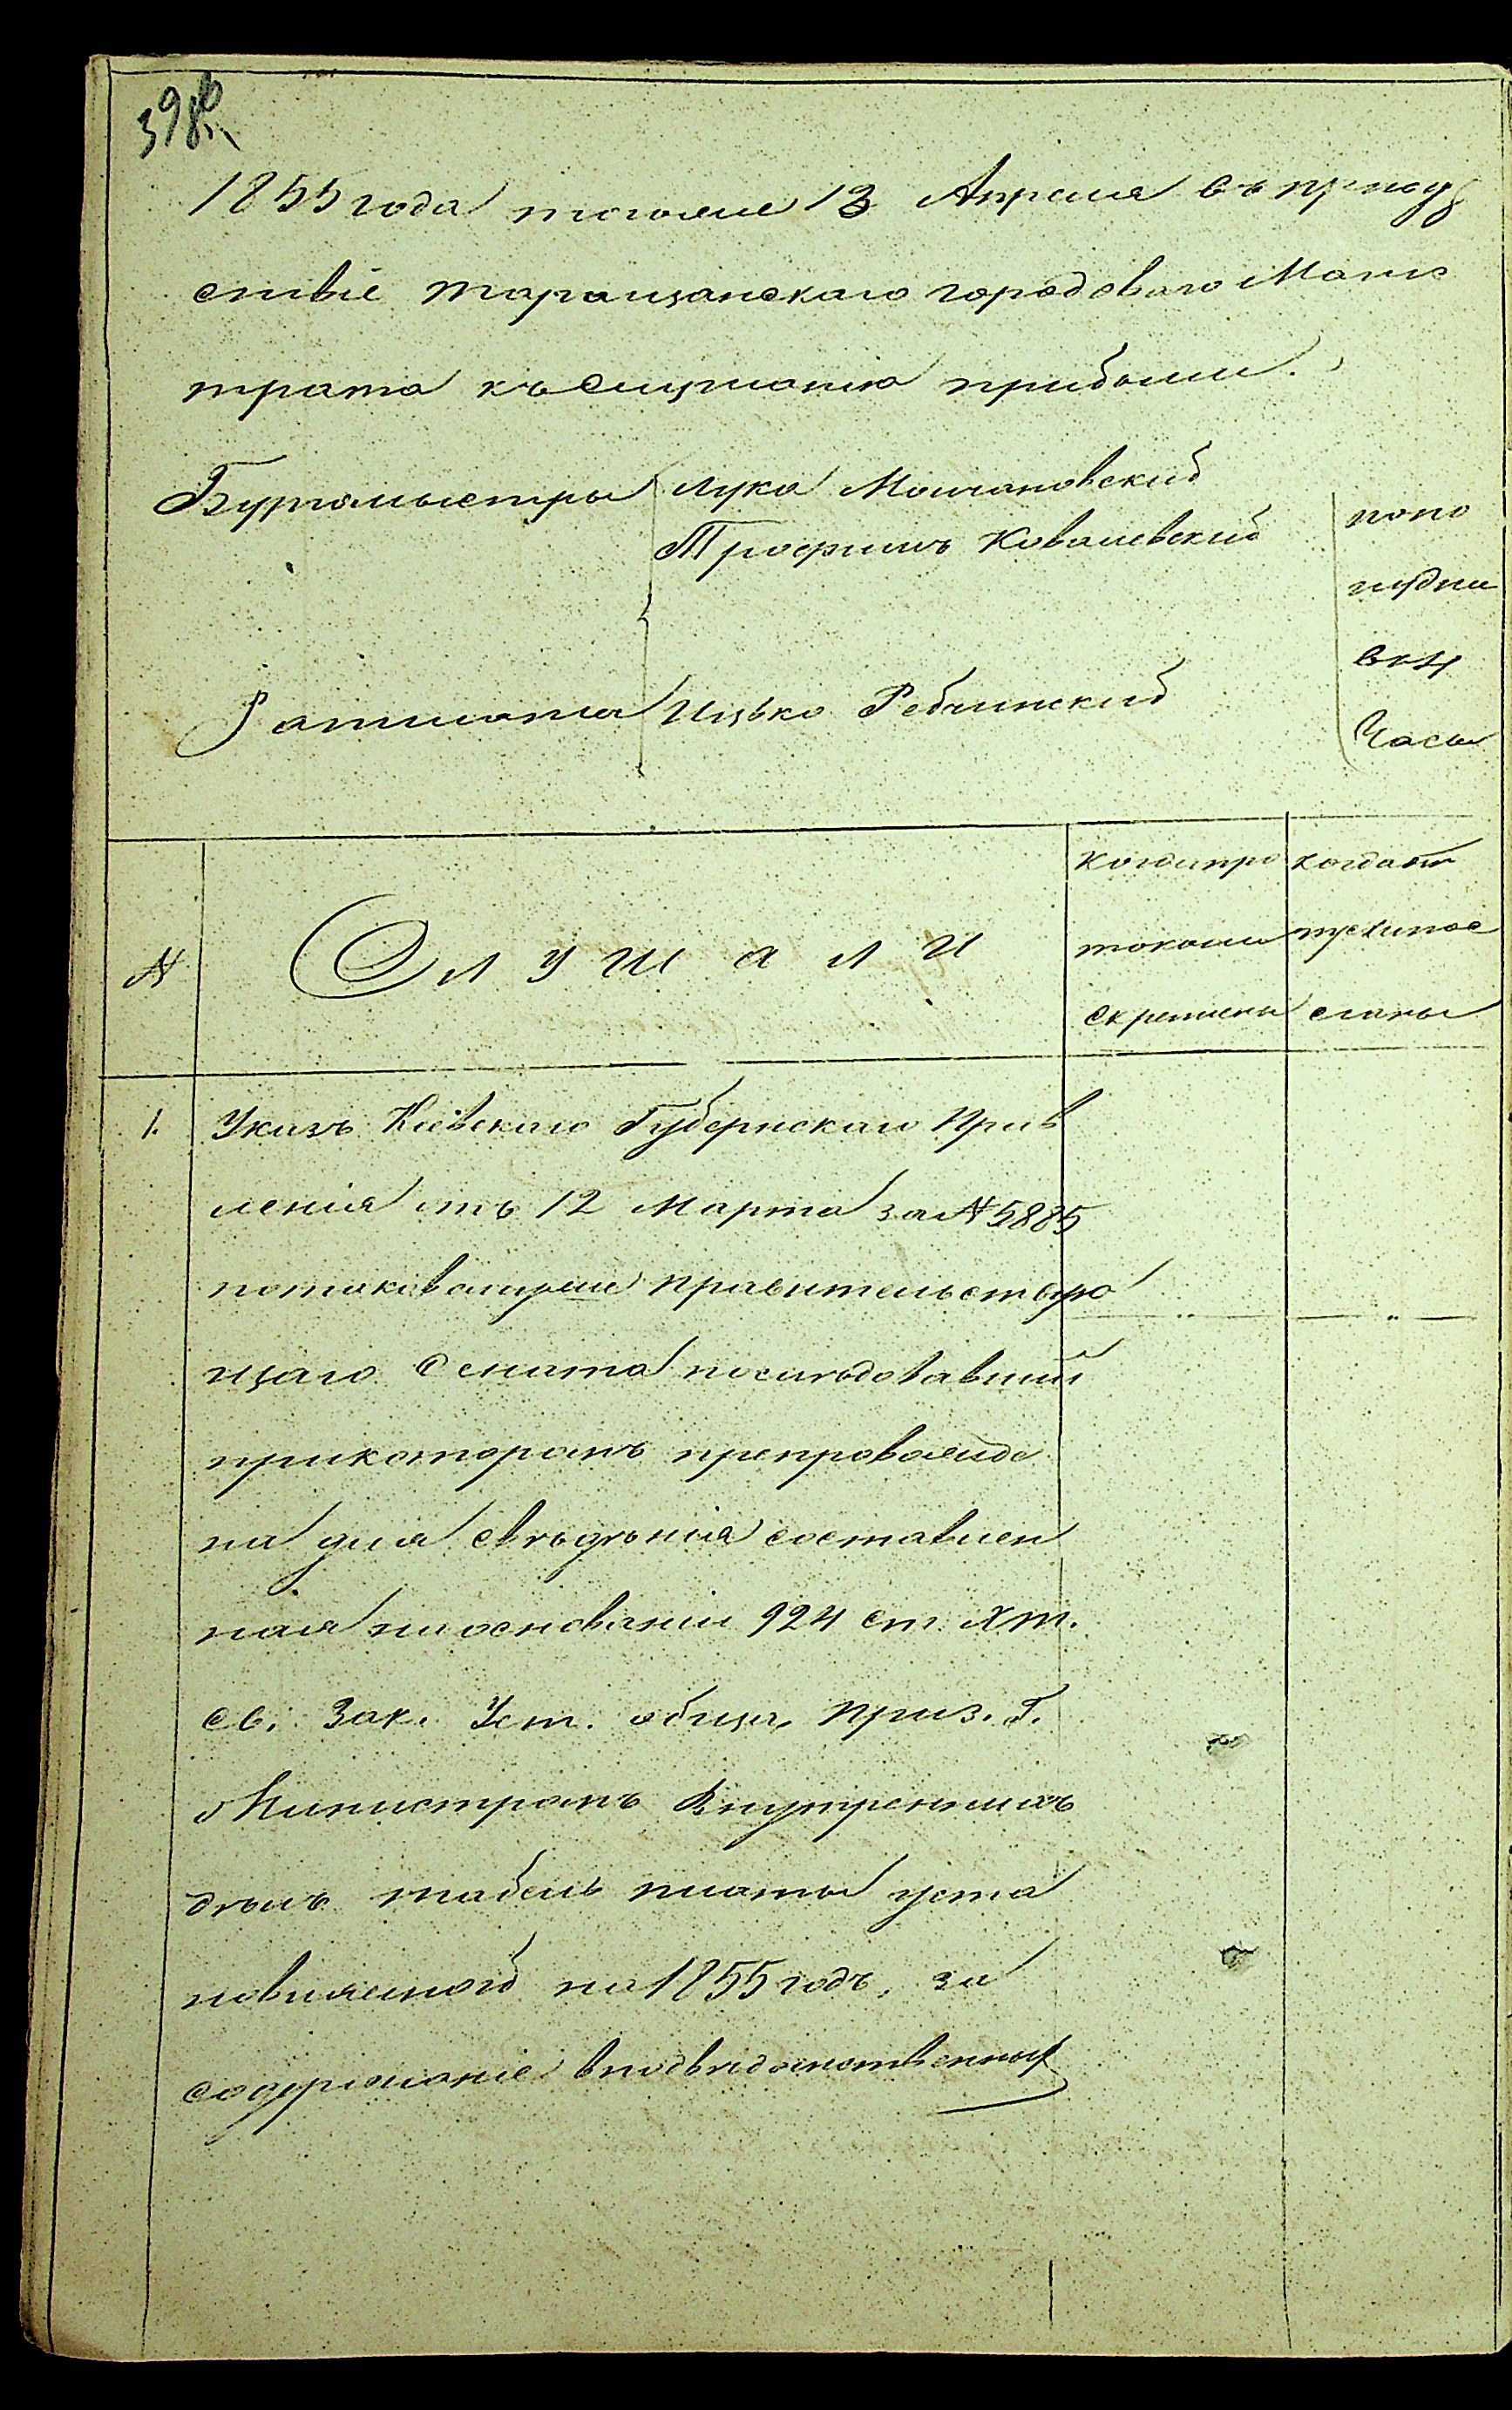 1855 года тогоже 13 Апреля въ присуд
ствіе таращанскаго городоваго Магис
трата къ слушанію прибыли.
Бургомыстры Лука Молчановский
Трофимъ Ковалевский
Ратмана Ицько Ребчинский
попо
лудни
въ 4
Часы
N
Слушали
когда про
токолы
скреплены
когда от
пуск
сланы
1. Указъ Кіевскаго Губернскаго Прав
ленія отъ 12 Марта за N 5885
потаковомуже Правительствую
щаго Сената последовавший
прикоторомъ препровожде
на для сведенія составлен
ная на основаніи 924 ст. XIII т.
Св. Зак. Уст. общ. приз. Г.
Министромъ Внутреннихъ
дѣлъ табель платы уста
новляемой на 1855 годъ, за
содержаніе вподведомственных